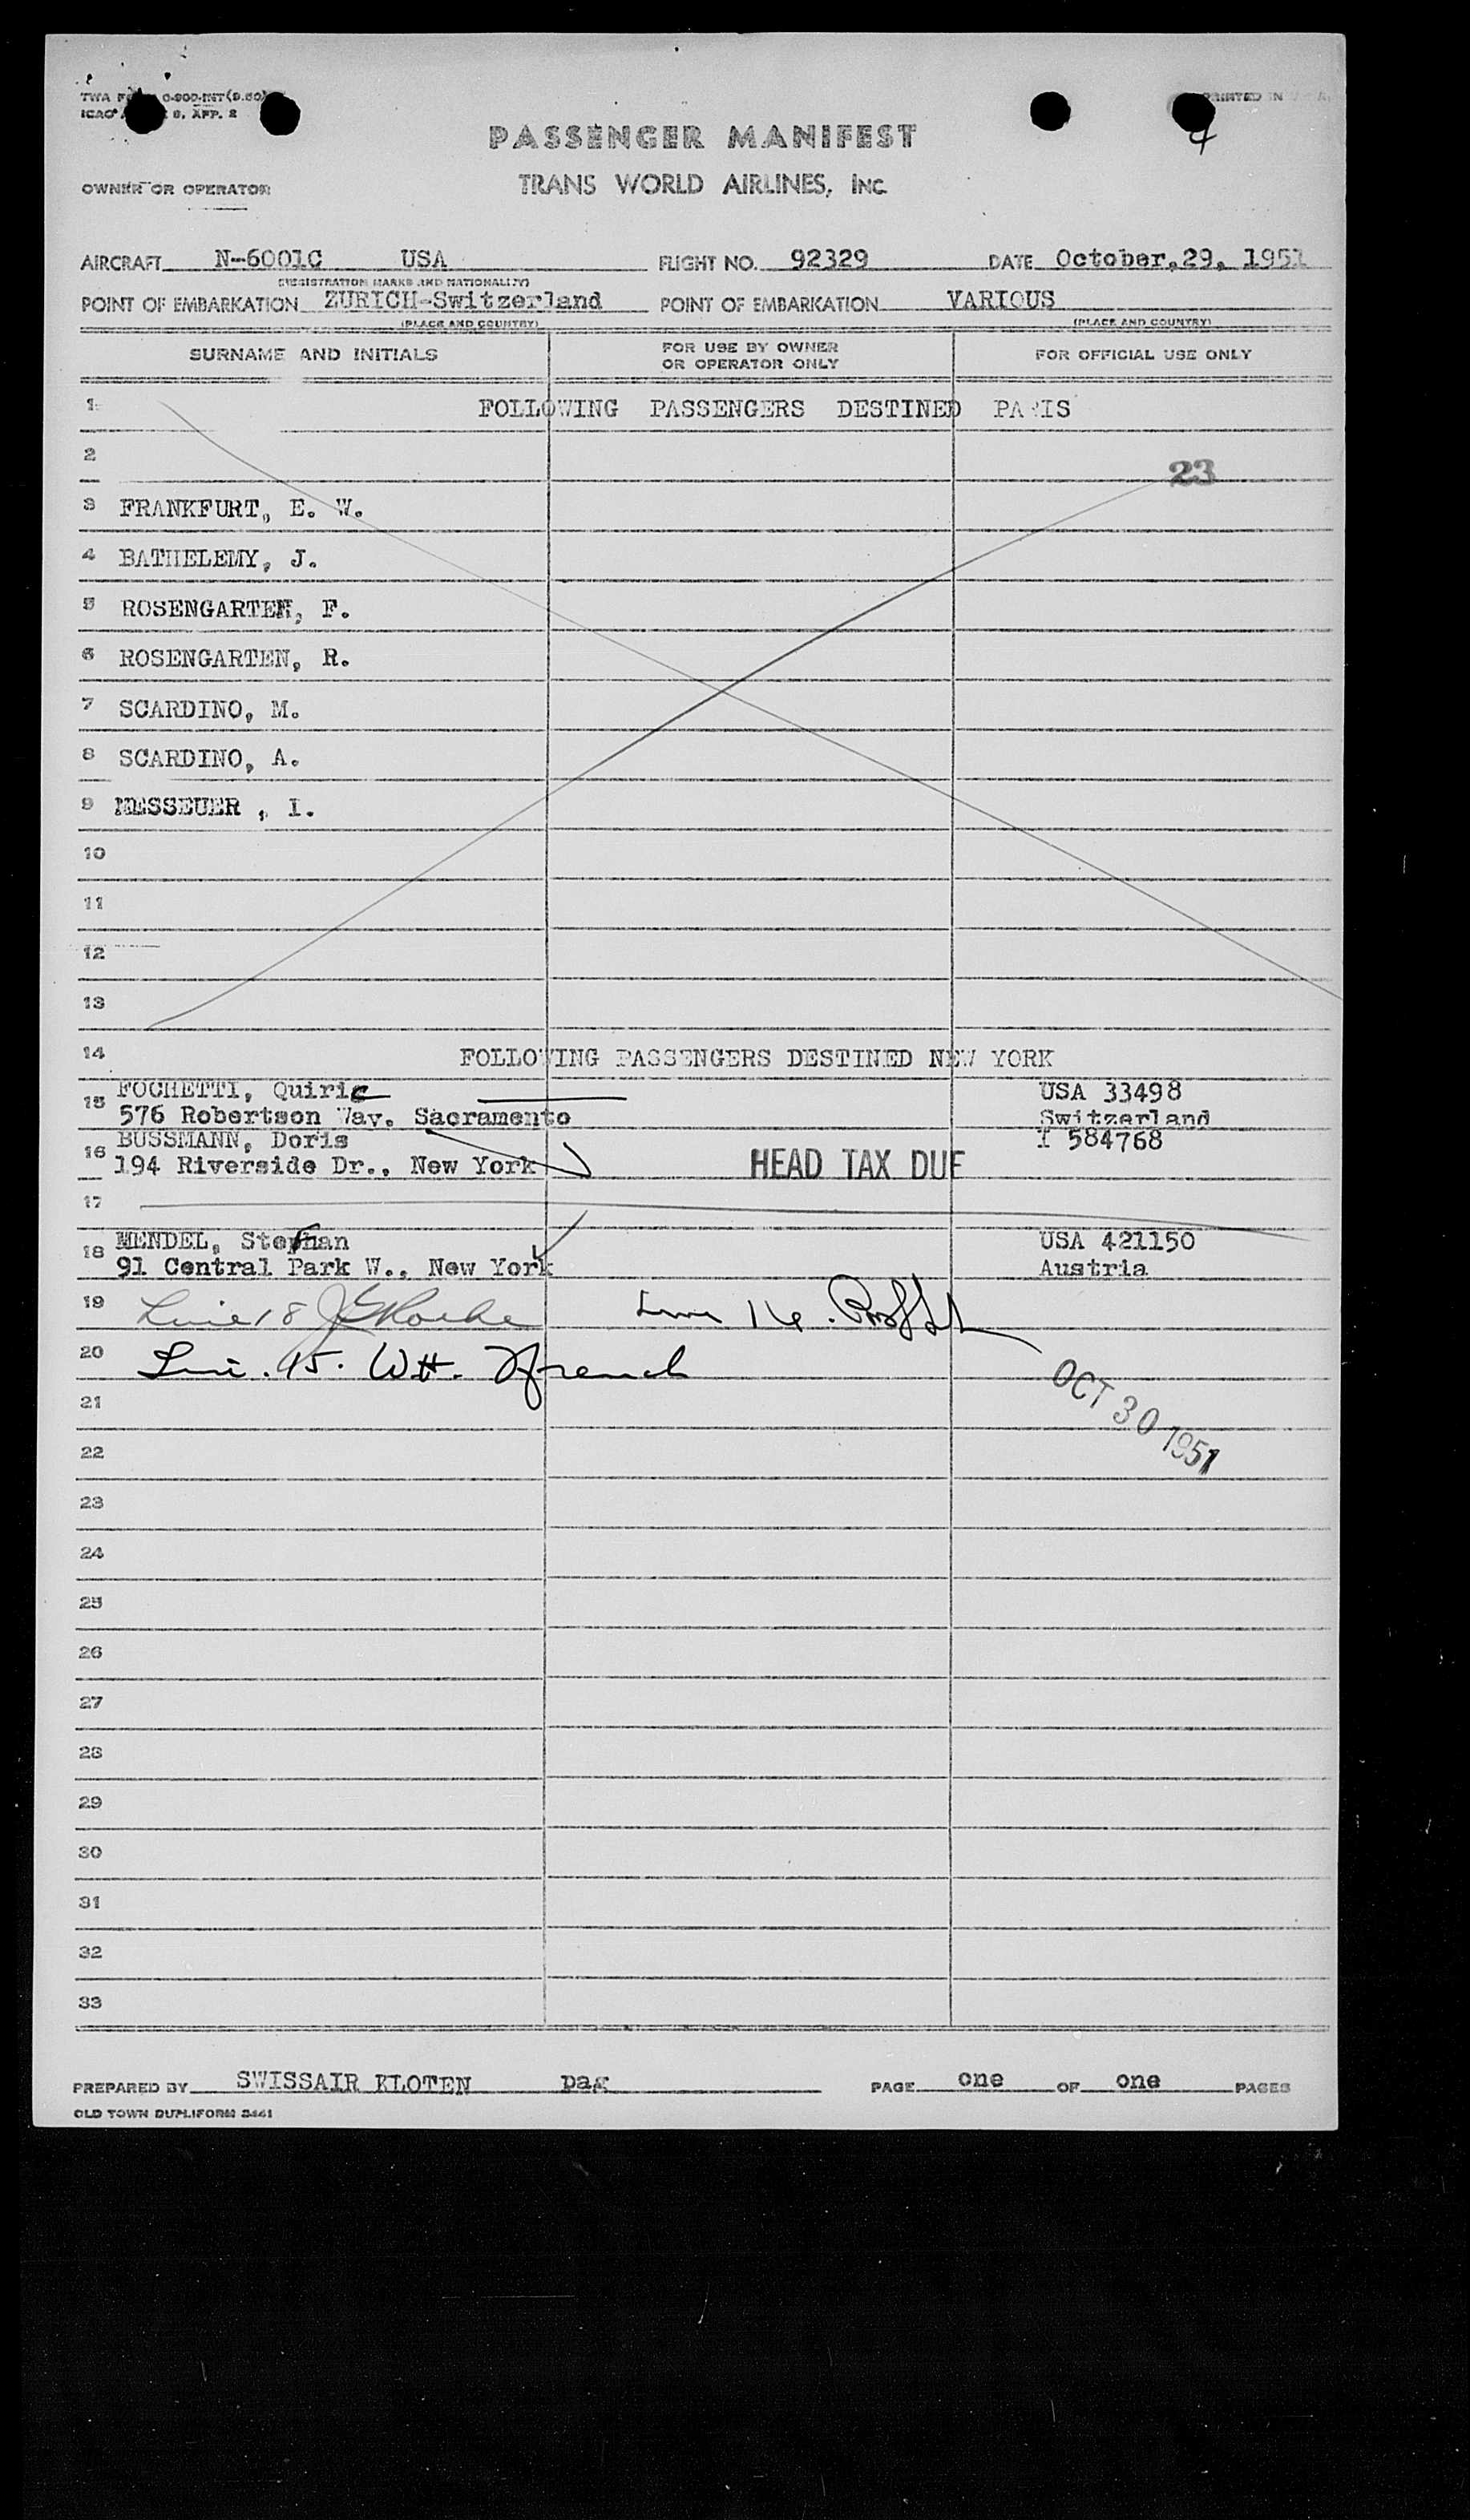 TWA F 0-900-INT(9.50)
PRINTED IN
ICAO 9, APP. 2
4
PASSENGER MANIFEST
OWNER OR OPERATOR
TRANS WORLD AIRLINES, INC.
AIRCRAFT N-6001C USA FLIGHT NO. 92329 DATE October,29, 1951
(REGISTRATION MARKS AND NATIONALITY)
POINT OF EMBARKATION ZURICH-Switzerland POINT OF EMBARKATION VARIOUS
(PLACE AND COUNTRY) (PLACE AND COUNTRY)
SURNAME AND INITIALS FOR USE BY OWNER OR OPERATOR ONLY FOR OFFICIAL USE ONLY
1 FOLLOWING PASSENGERS DESTINED PARIS
2
23
3 FRANKFURT, E. W.
4 BATHELEMY, J.
5 ROSENGARTEN, F.
6 ROSENGARTEN, R.
7 SCARDINO, M.
8 SCARDINO, A.
9 MESSEUER , I.
10
11
12
13
14 FOLLOWING PASSENGERS DESTINED NEW YORK
15 FOCHETTI, Quiric USA 33498
576 Robertson Way. Sacramento Switzerland
16 BUSSMANN, Doris I 584768
194 Riverside Dr., New York HEAD TAX DUE
17
18 MENDEL, Stephan USA 421150
91 Central Park W., New York Austria
19 Line 18 Line 16.
20 Line. 15. WH. French
OCT 30 1951
21
22
23
24
25
26
27
28
29
30
31
32
33
PREPARED BY SWISSAIR KLOTEN pag PAGE one OF one PAGES
OLD TOWN DUPLIFORM 3441